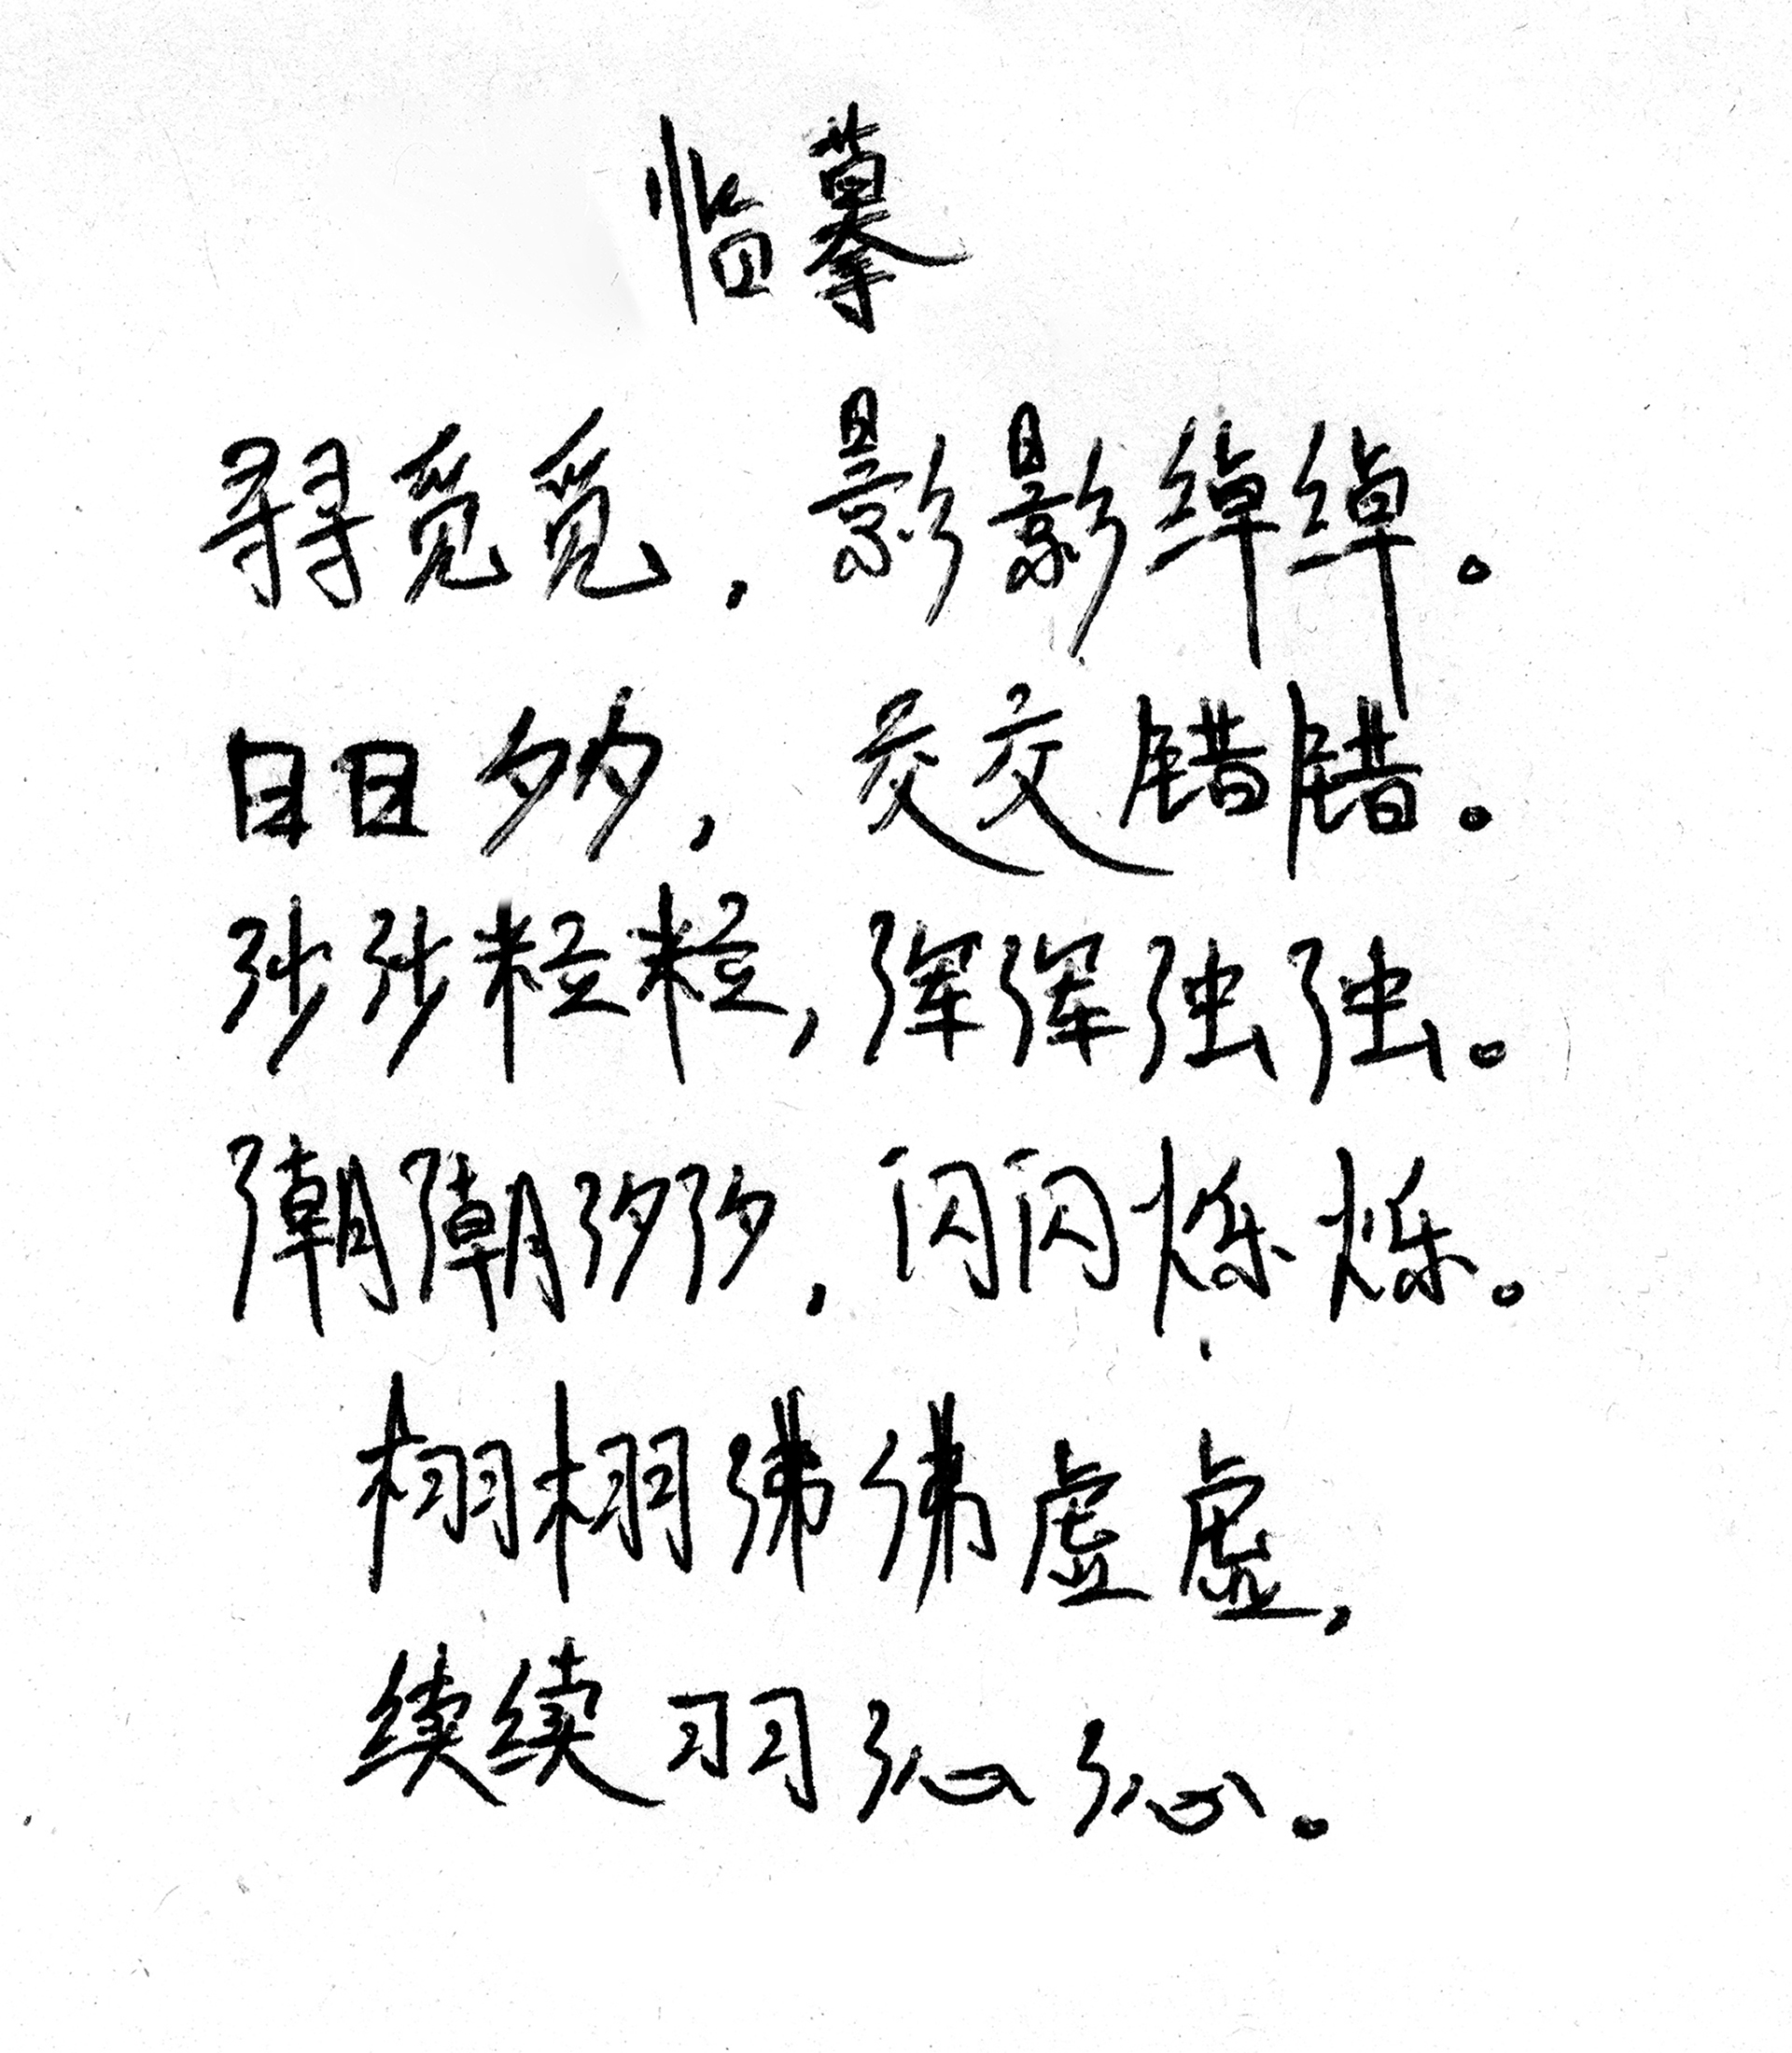 临摹
寻寻觅觅，影影绰绰。
日日夕夕，交交错错。
沙沙粒粒，浑浑浊浊。
潮潮汐汐，闪闪烁烁。
栩栩沸沸虚虚，
续续习习沁沁。